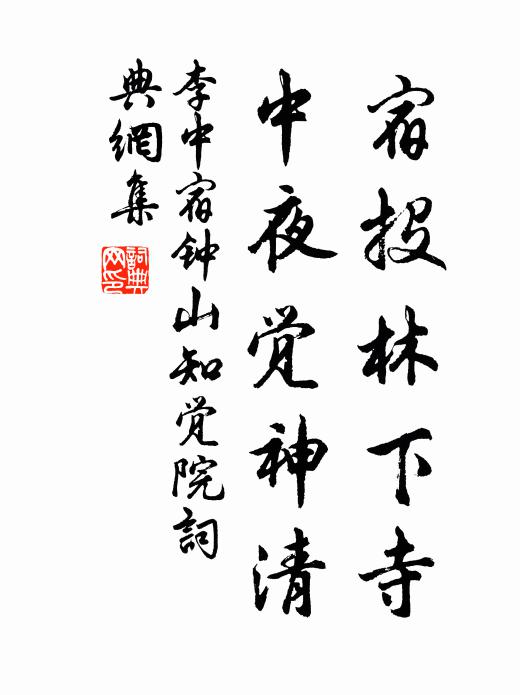 宿投林下寺
中夜觉神清
李中宿钟山知觉院詞
典網集
詞典
网印